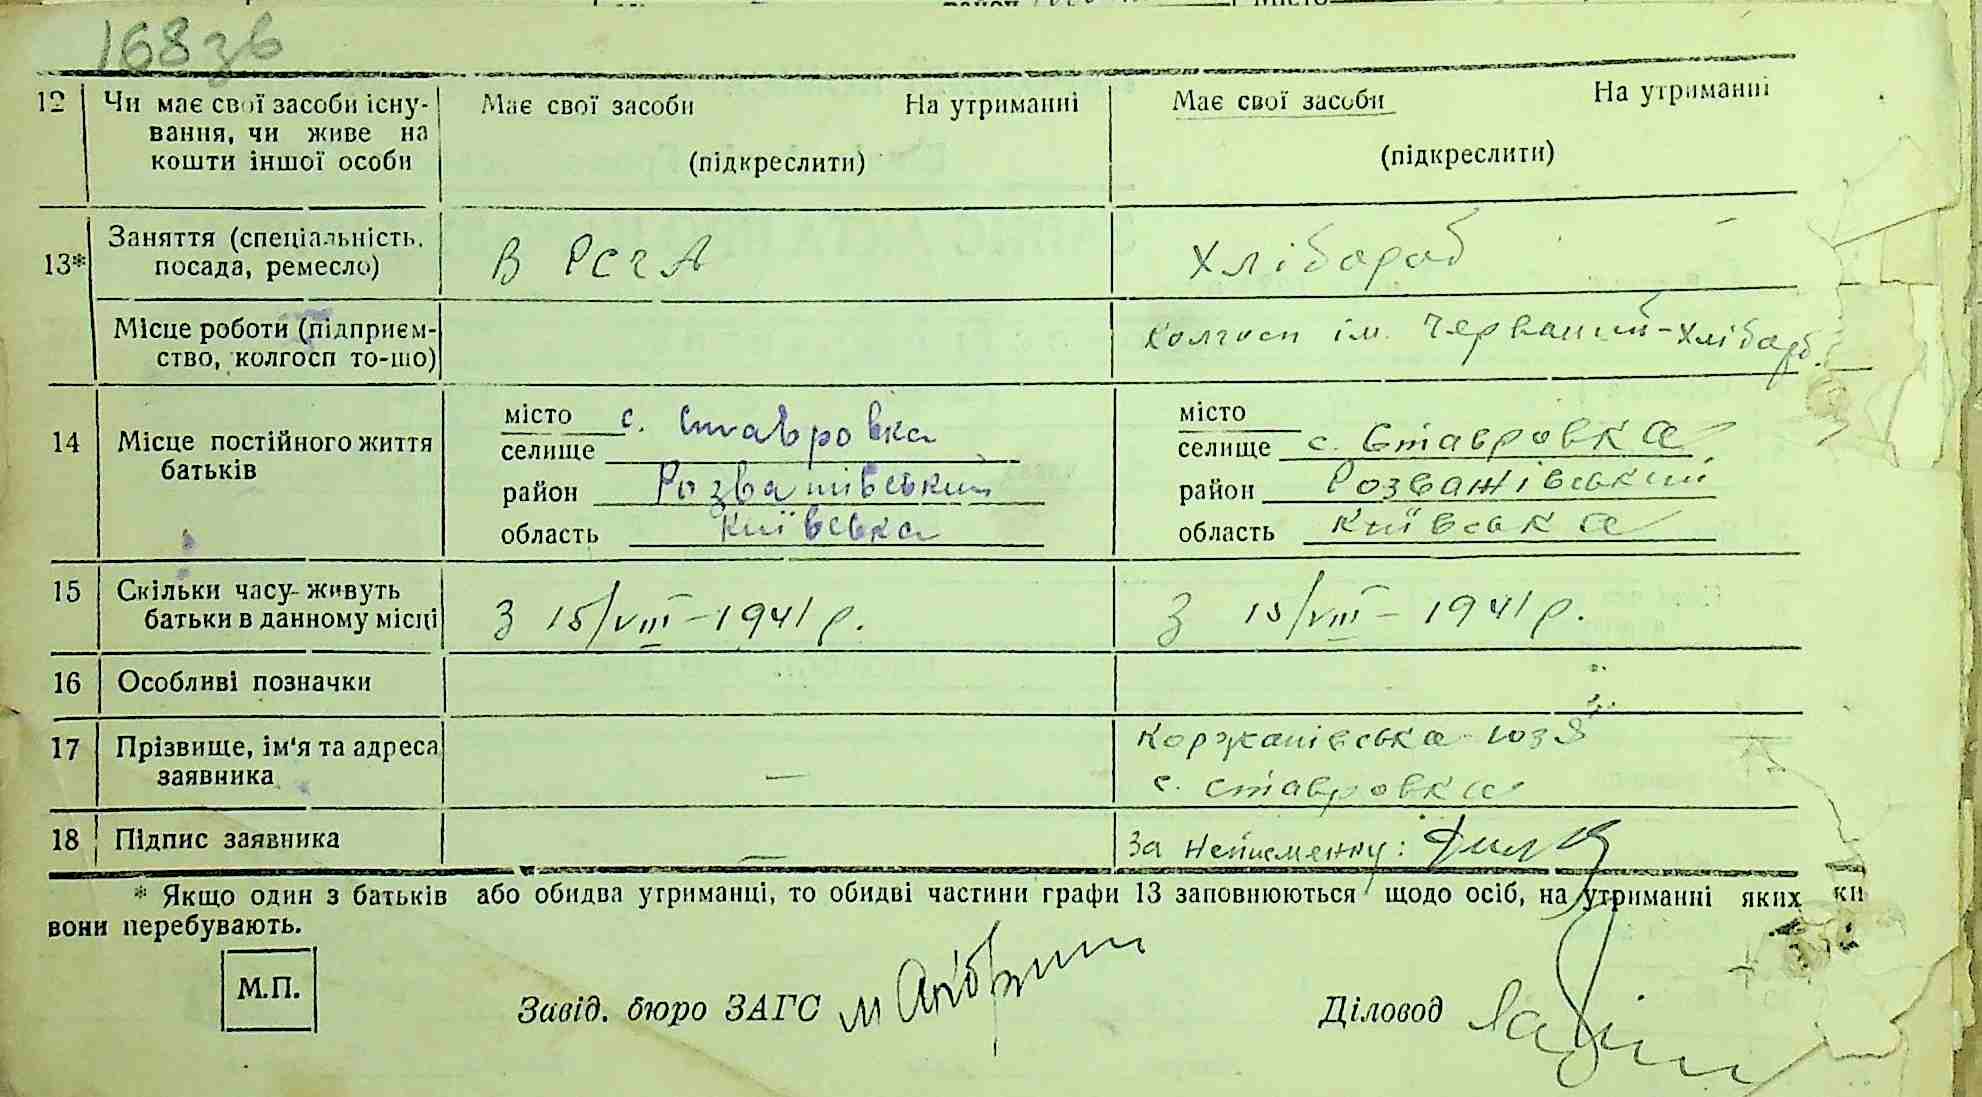 168зв
12 Чи має свої засоби існу- Має свої засоби На утриманні Має свої засоби На утриманні
вання, чи живе на
кошти іншої особи (підкреслити) (підкреслити)
13* Заняття (спеціальність, В РСЧА Хлібороб
посада, ремесло)
Місце роботи (підприєм- Колгосп ім. Червоний-Хлібороб
ство, колгосп то-що)
14 Місце постійного життя батьків
місто с. Ставровка місто
селище селище с. Ставровка
район Розважівський район Розважівський
область Київська область Київська
15 Скільки часу живуть З 15/VIII-1941 р. З 15/VIII-1941 р.
батьки в данному місці
16 Особливі позначки
17 Прізвище, ім'я та адреса — Коржанівська Юзя
заявника с. Ставровка
18 Підпис заявника — За неписменну:
* Якщо один з батьків або обидва утриманці, то обидві частини графи 13 заповнюються щодо осіб, на утриманні яких
вони перебувають.
М.П. Завід. бюро ЗАГС Діловод